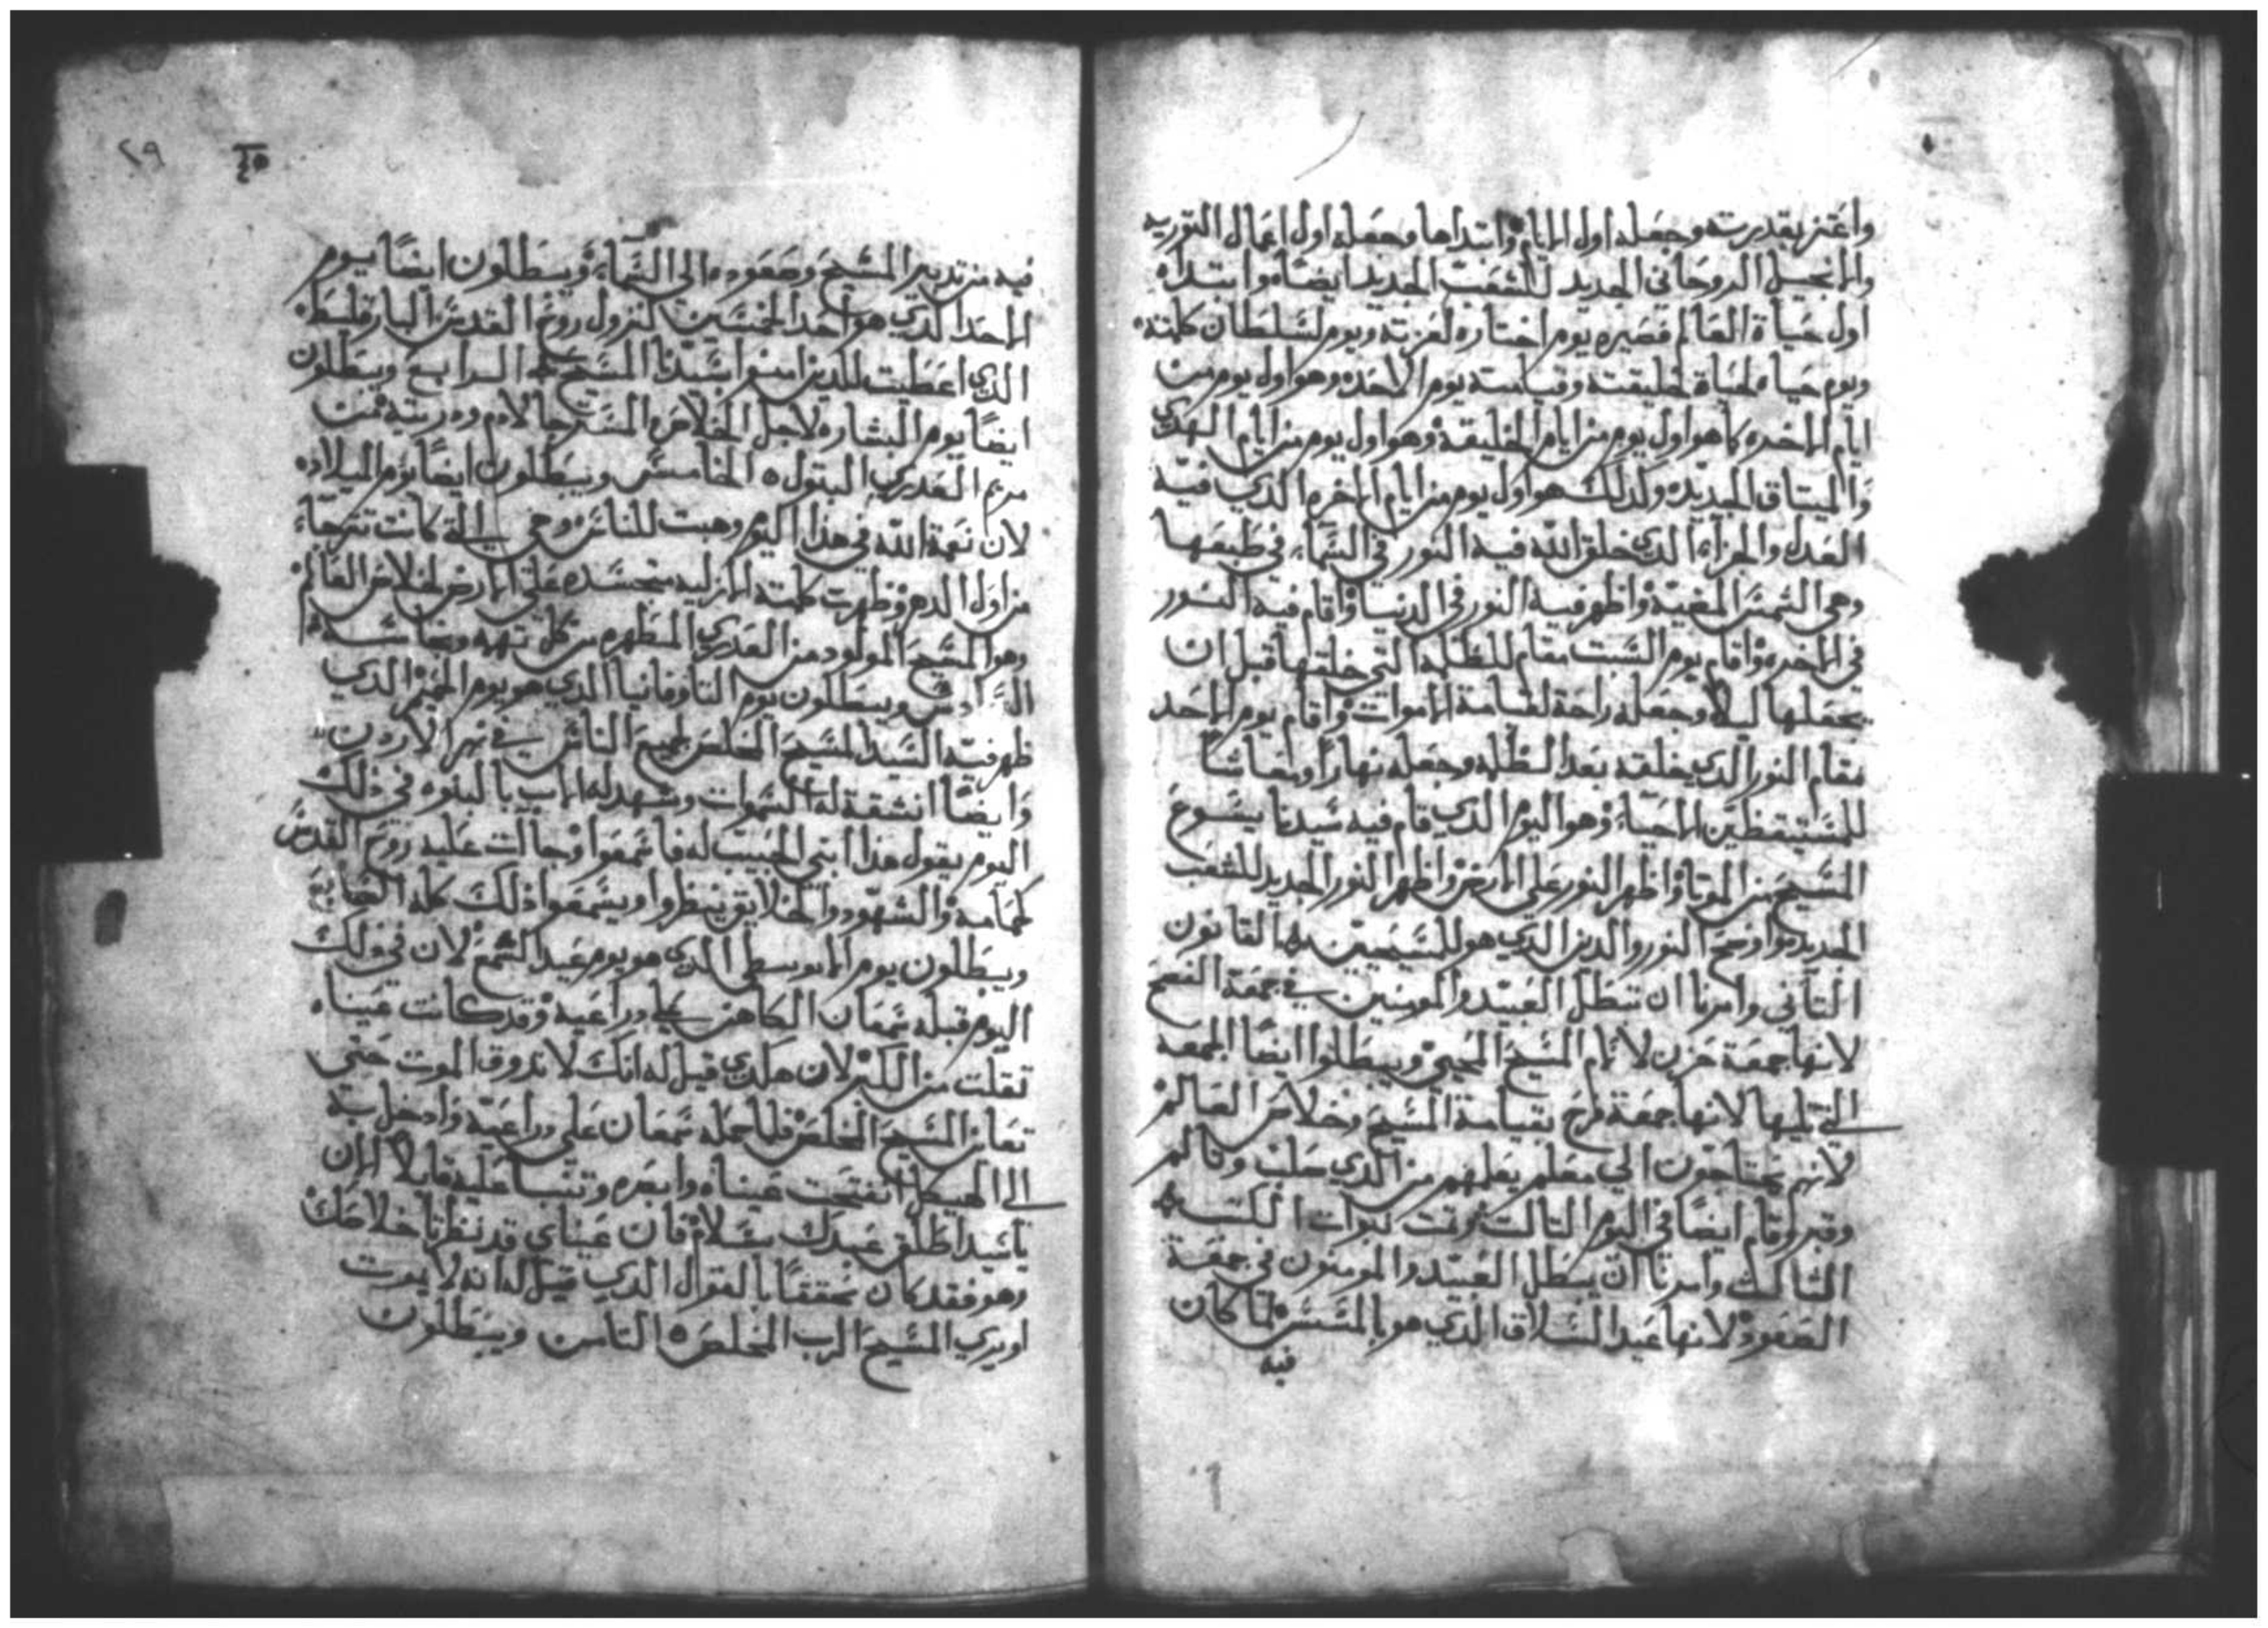 واعتز بقدرته وجعله اول الايام وابتداها وجعله اول اعمال التوريه
والانجيل الروحاني الجديد للشعب الجديد ايضا وابتداه
اول حياة العالم فصيره يوم اختاره لعزته ويوم لسلطان كلمته
ويوم حياه لحياة خليقته وقيامته يوم الاحد وهو اول يوم من
ايام الاخره كما هو اول يوم من ايام الخليقه وهو اول يوم من ايام الهدي
والميتاق الجديد ولذلك هو اول يوم من ايام الاخره الدي فيه
العدل والجزاء الدي خلق الله فيه النور في السماء في طبعها
وهي الشمس المضيه واظهر فيه النور في الدنيا واقام فيه النور
في الاخره واقام يوم السبت مقام للظلمه التي خلقها قبل ان
يجعلها ليلا وجعله راحة لقيامة الاموات واقام يوم الاحد
مقام النور الدي خلقه بعد الظلمه وجعله نهارا ومعاشا
للمستيقظين الاحياء وهو اليوم الدي قام فيه سيدنا يسوع
المسيح من الموتا واظهر النور على الارض واظهر النور الجديد للشعب
الجديد واوضح النور والدين الدي هو للمسيحيين القانون
التاني وامرنا ان تبطل العبيد والمومنين في جمعة الفصح
لانها جمعة حزن لالام المسيح المحيي ويبطلوا ايضا الجمعه
التي تليها لانها جمعة فرح بقيامة المسيح وخلاص العالم
لانهم يحتاجون الي معلم يعلمهم من الدي صلب وتالم
وقبر وقام ايضا في اليوم التالت وتمت نبوات الكتب
التالت وامرنا ان يبطل العبيد والمومنون في جمعة
الصعود لانها عيد السلاق الدي هو بالمسره لما كان
فيه
٢٩
فيه من تدبير المسيح وصعوده الى السماء ويبطلون ايضا يوم
الاحد الدي هو احد الخمسين لنزول روح القدس البارقليط
الدي اعطيت للدين امنوا بسيدنا المسيح الرابع ويبطلون
ايضا يوم البشاره لاجل الخلاص المسترجا لادم ودريته من
مريم العدري البتول الخامس ويبطلون ايضا يوم الميلاد
لان نعمة الله في هذا اليوم وهبت للناس وهي التي كانت تترجاه
من اول الدهر وظهرت كلمته الازليه متجسده على الارض لخلاص العالم
وهو المسيح المولود من العدري المطهره من كل
السادس ويبطلون يوم التاوفانيا الدي هو يوم الخير الدي
ظهر فيه السيد المسيح المخلص لجميع الناس في نهر الاردن
وايضا انشقة له السموات وشهد له الاب بالبنوه في ذلك
اليوم يقول هذا ابني الحبيب له فاسمعوا وجالت عليه روح القدس
كحمامه والشهود والخلايق ينظروا ويسمعوا ذلك كله السابع
ويبطلون يوم الدي هو يوم عيد الشمع لان في ذلك
اليوم قبله سمعان الكاهن على دراعيه وقد كانت عيناه
تقلت من الكبر لان هكدي قيل له انك لا تدوق الموت حتي
تعاين المسيح المخلص فلما حمله سمعان على دراعيه وادخل به
الى الهيكل انفتحت عيناه وابصره وتنبا عليه قايلا الان
يا سيد اطلق عبدك بسلام فان عيناي قد نظرتا خلاصك
وهو فقد كان محققا بالقول الدي قيل له انه لا يموت
او يري المسيح الرب المخلص التامن ويبطلون